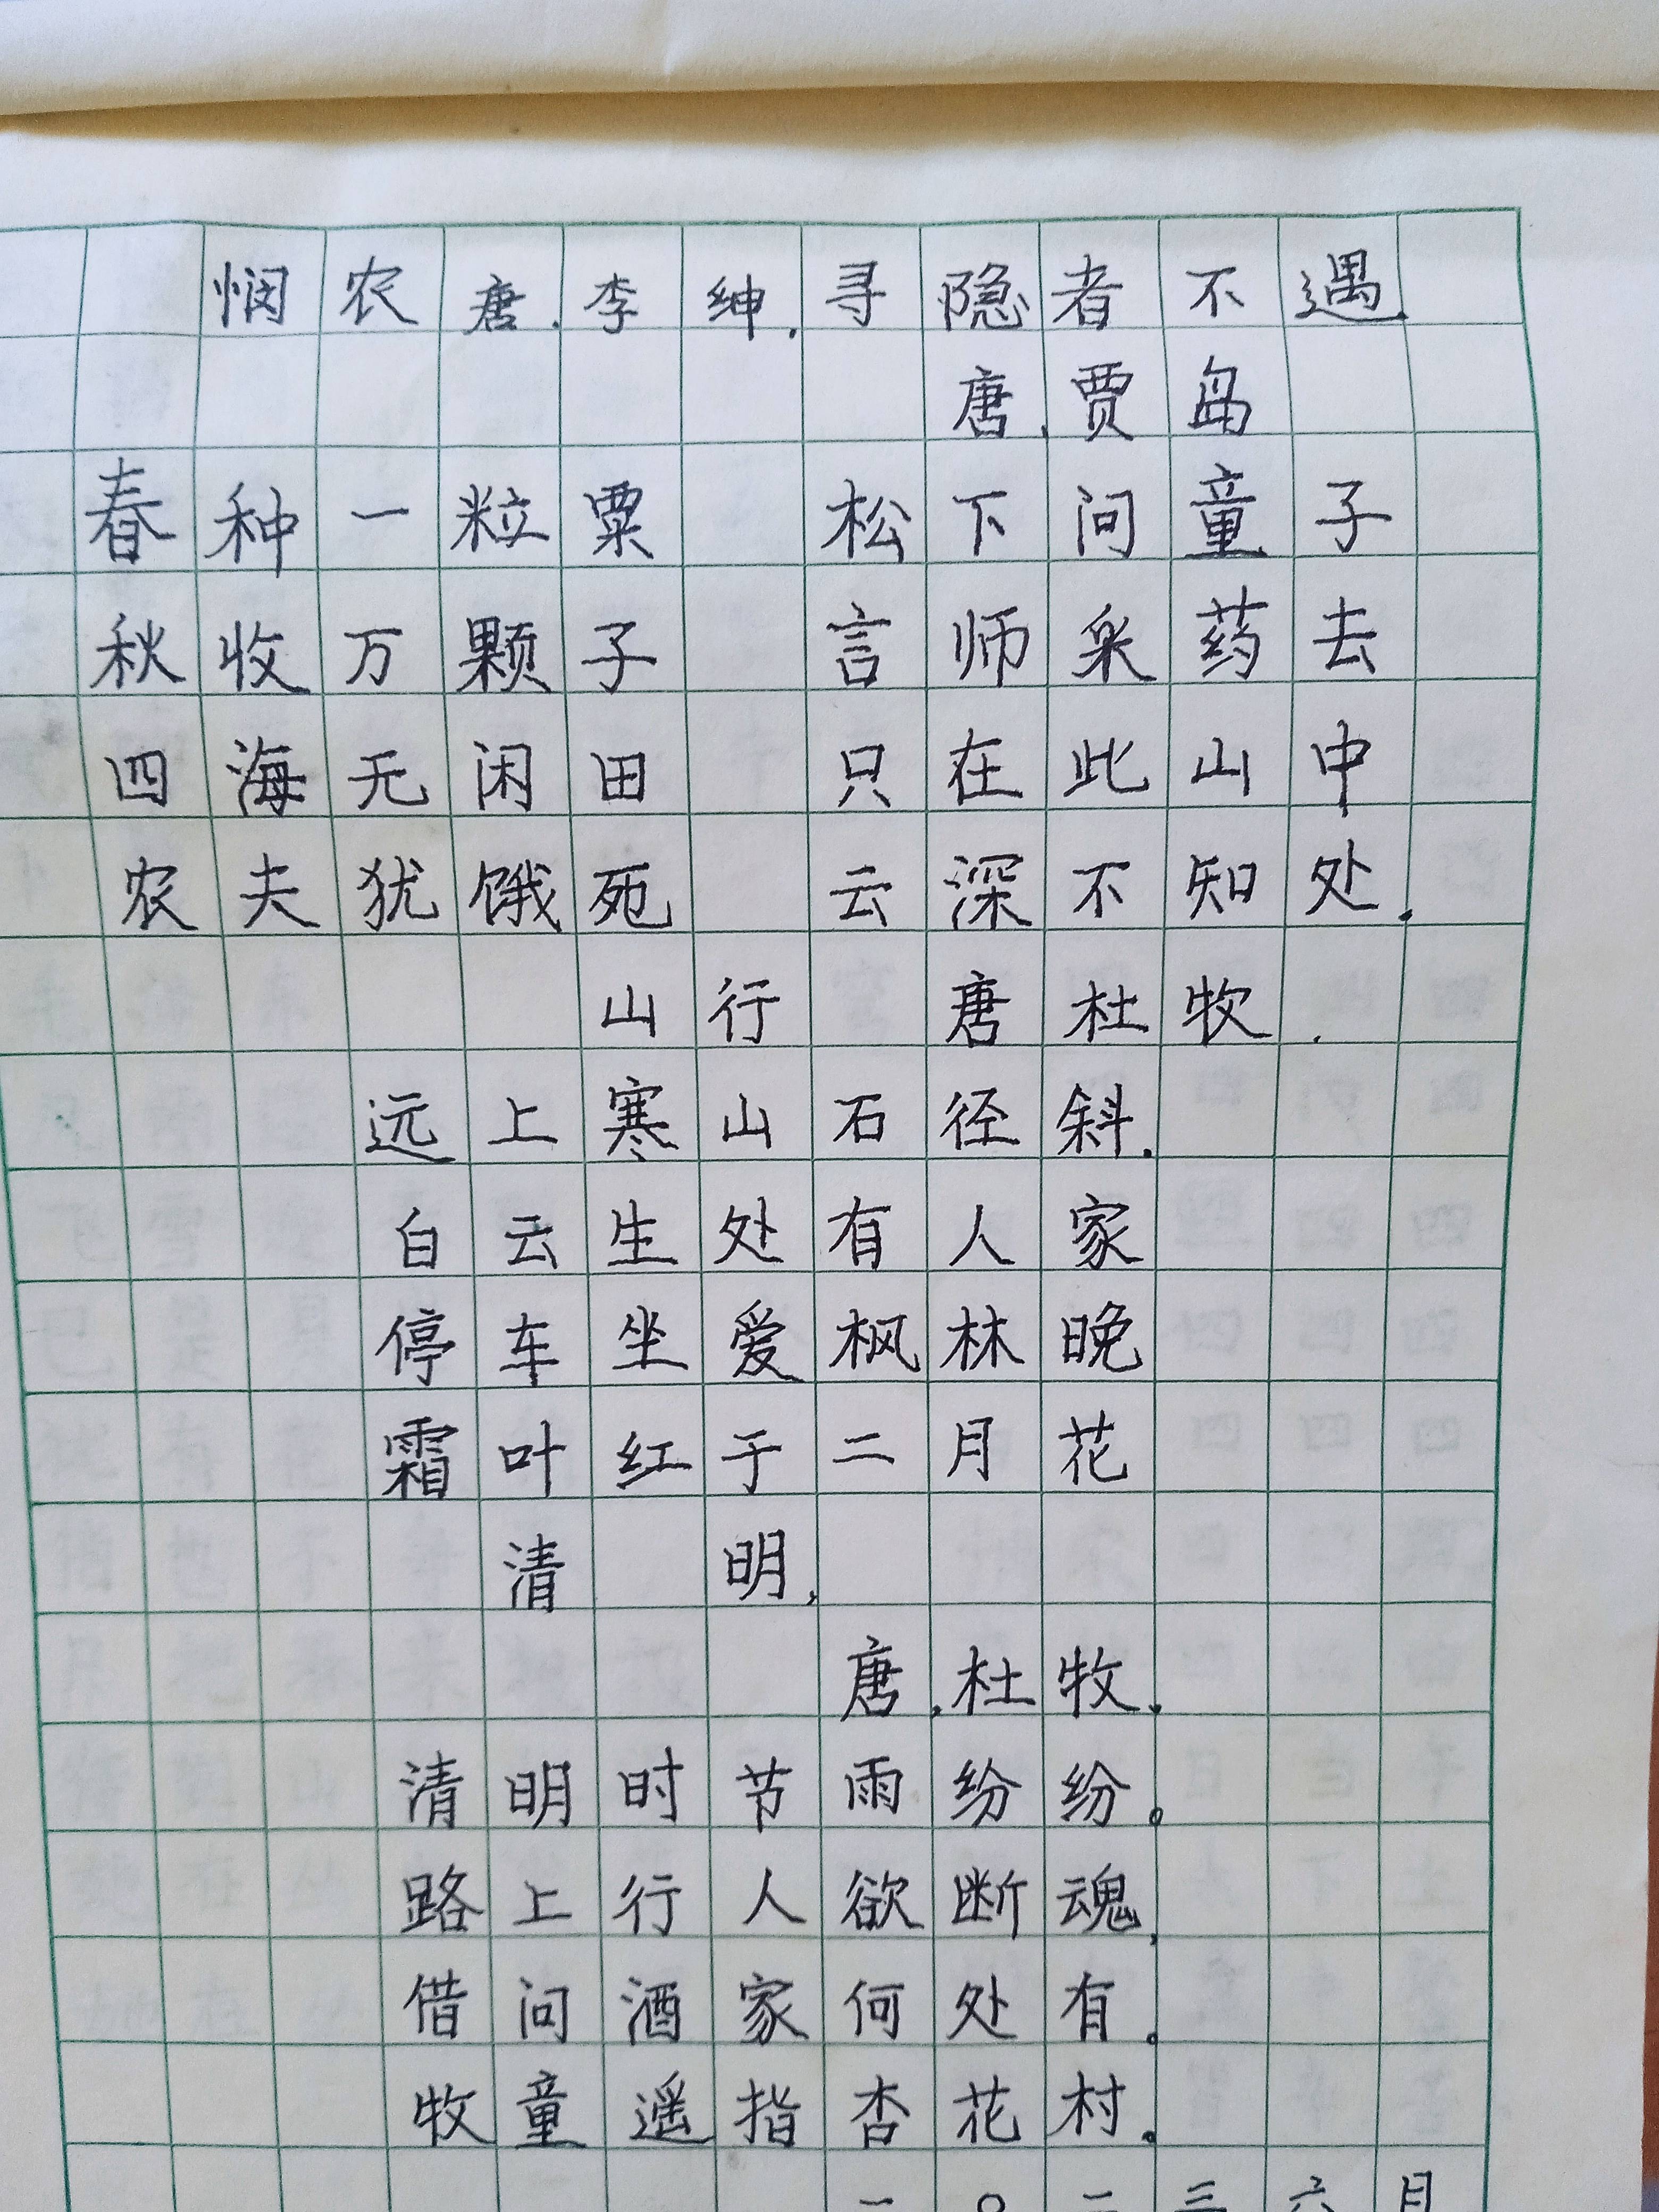 悯农唐.李绅.寻隐者不遇.
唐.贾岛
春种一粒粟 松下问童子
秋收万颗子 言师采药去
四海无闲田 只在此山中
农夫犹饿死 云深不知处.
山行 唐杜牧.
远上寒山石径斜.
白云生处有人家
停车坐爱枫林晚
霜叶红于二月花
清 明.
唐.杜牧.
清明时节雨纷纷。
路上行人欲断魂.
借问酒家何处有。
牧童遥指杏花村。
二三六月